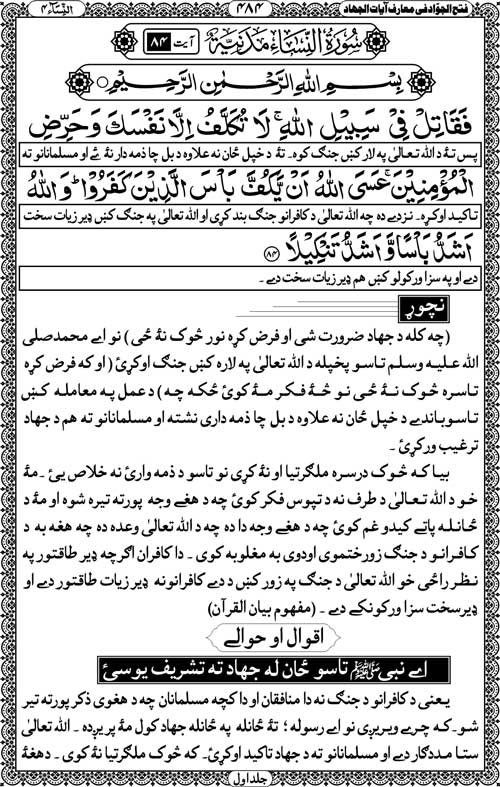 فتح الجوّاد فی معارف آیات الجهاد ۴۸۴ النِّسَاء ۴
سُورَةُ النِّسَاءِ مَدَنِيَّةٌ آیت ۸۴
بِسْمِ اللهِ الرَّحْمٰنِ الرَّحِيْمِ
فَقَاتِلْ فِيْ سَبِيْلِ اللهِ ۚ لَا تُكَلَّفُ اِلَّا نَفْسَكَ وَحَرِّضِ
پس تهٔ د الله تعالیٰ په لار کښ جنګ کوه۔ تهٔ د خپل ځان نه علاوه د بل چا ذمه دار نهٔ ئے او مسلمانانو ته
الْمُؤْمِنِيْنَ ۚ عَسَى اللهُ اَنْ يَّكُفَّ بَاْسَ الَّذِيْنَ كَفَرُوْا ؕ وَاللهُ
تاکید اوکړه۔ نزدے ده چه الله تعالیٰ د کافرانو جنګ بند کړی او الله تعالیٰ په جنګ کښ ډیر زیات سخت
اَشَدُّ بَاْسًا وَّاَشَدُّ تَنْكِيْلًا ﴿۸۴﴾
دے او په سزا ورکولو کښ هم ډیر زیات سخت دے۔
نچوړ
(چه کله د جهاد ضرورت شی او فرض کړه نور څوک نهٔ ځی) نو اے محمد صلی
الله علیه وسلم تاسو پخپله د الله تعالیٰ په لاره کښ جنګ اوکړئ (او که فرض کړه
تاسره څوک نهٔ ځی نو څهٔ فکر مهٔ کوئ ځکه چه) د عمل په معامله کښ
تاسو باندے د خپل ځان نه علاوه د بل چا ذمه داری نشته او مسلمانانو ته هم د جهاد
ترغیب ورکړئ۔
بیا که څوک درسره ملګرتیا او نهٔ کړی نو تاسو د ذمه وارئ نه خلاص یئ۔ مهٔ
خو د الله تعالیٰ د طرف نه د تپوس فکر کوئ چه د هغے وجه پورته تیره شوه او مهٔ د
ځانله پاتے کیدو غم کوئ چه د هغے وجه دا ده چه د الله تعالیٰ وعده ده چه هغه به د
کافرانو د جنګ زور ختموی او دوی به مغلوبه کوی۔ دا کافران اګرچه ډیر طاقتور په
نظر راځی خو الله تعالیٰ د جنګ په زور کښ د دے کافرانو نه ډیر زیات طاقتور دے او
ډیر سخت سزا ورکونکے دے۔ (مفهوم بیان القرآن)
اقوال او حوالے
اے نبی ﷺ تاسو ځان له جهاد ته تشریف یوسئ
یعنی د کافرانو د جنګ نه دا منافقان او دا کچه مسلمانان چه د هغوی ذکر پورته تیر
شو۔ که چرے ویریږی نو اے رسوله؛ تهٔ ځانله په ځانله جهاد کول مهٔ پریږده۔ الله تعالیٰ
ستا مددګار دے او مسلمانانو ته د جهاد تاکید اوکړئ۔ که څوک ملګرتیا نهٔ کوی۔ د هغهٔ
جلد اول